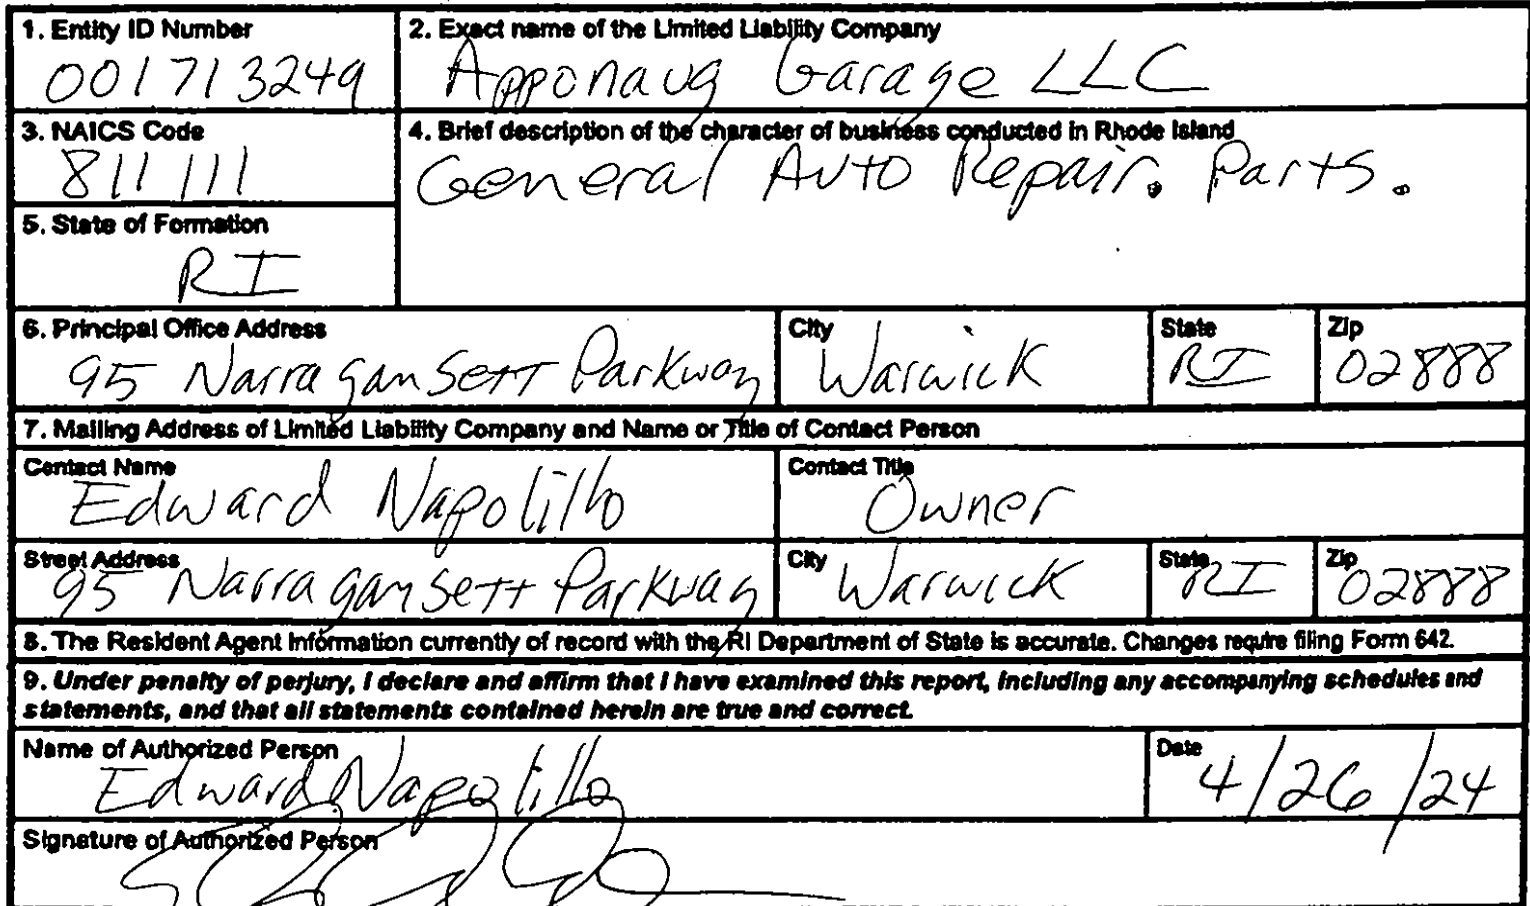 1. Entity ID Number
001713249
2. Exact name of the Limited Liability Company
Apponaug Garage LLC
3. NAICS Code
811111
4. Brief description of the character of business conducted in Rhode Island
General Auto Repair. Parts.
5. State of Formation
RI
6. Principal Office Address
95 Narragansett Parkway
City
Warwick
State
RI
Zip
02888
7. Mailing Address of Limited Liability Company and Name or Title of Contact Person
Contact Name
Edward Napolillo
Contact Title
Owner
Street Address
95 Narragansett Parkway
City
Warwick
State
RI
Zip
02888
8. The Resident Agent information currently of record with the RI Department of State is accurate. Changes require filing Form 642.
9. Under penalty of perjury, I declare and affirm that I have examined this report, including any accompanying schedules and
statements, and that all statements contained herein are true and correct.
Name of Authorized Person
Edward Napolillo
Date
4/26/24
Signature of Authorized Person